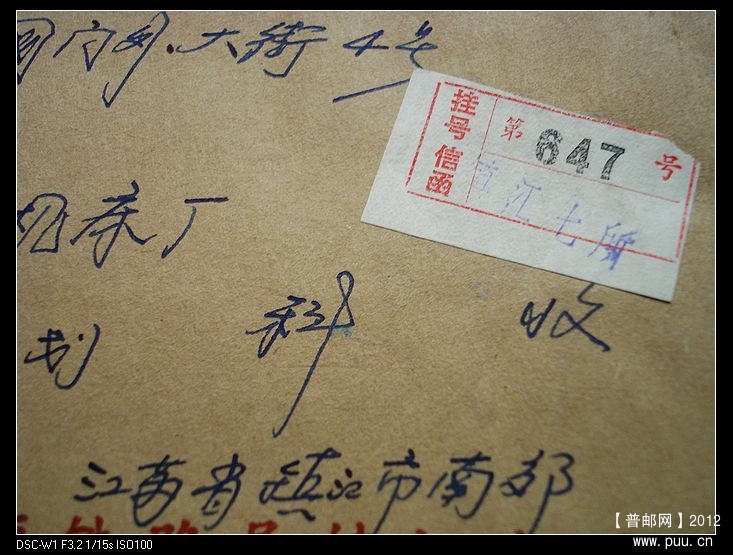 门外大街4号
挂号信函
第 647 号
镇江七所
机床厂
划 科 收
江苏省镇江市南郊
【普邮网】2012
www.puu.cn
DSC-W1 F3.2 1/15s ISO100